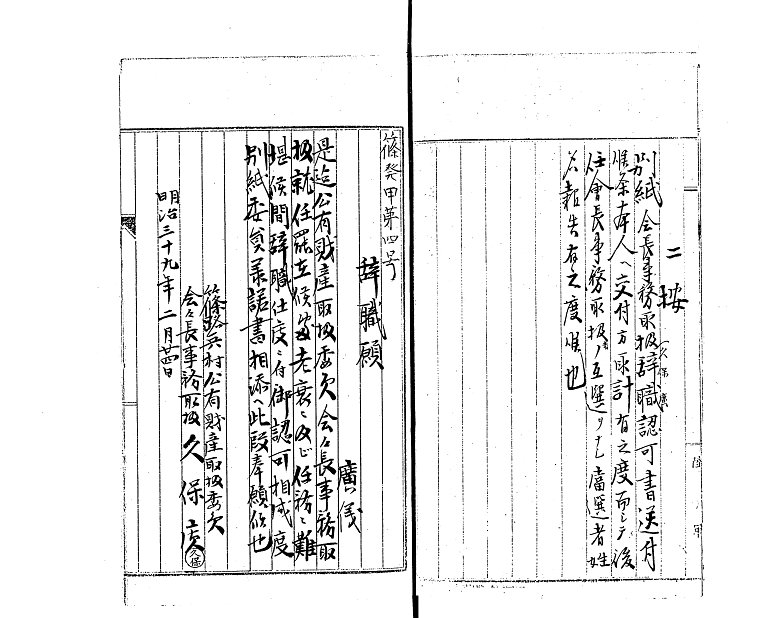 二按
別紙会長事務取扱辞職認可書送付
(久保廣)
候条本人ヘ交付方取計有之度而シテ後
任會長事務取扱ノ互選ヲナシ當選者姓
名報告有之度候也
篠発甲第四号
辞職願
廣儀
是迄公有財産取扱委員会々長事務取
扱就任罷在候處老衰ニ及ビ任務ニ難
堪候間辞職仕度ニ付御認可相成度
別紙委員承諾書相添ヘ此段奉願候也
明治三十九年二月廿四日
篠路兵村公有財産取扱委員
会々長事務取扱久保廣
久保